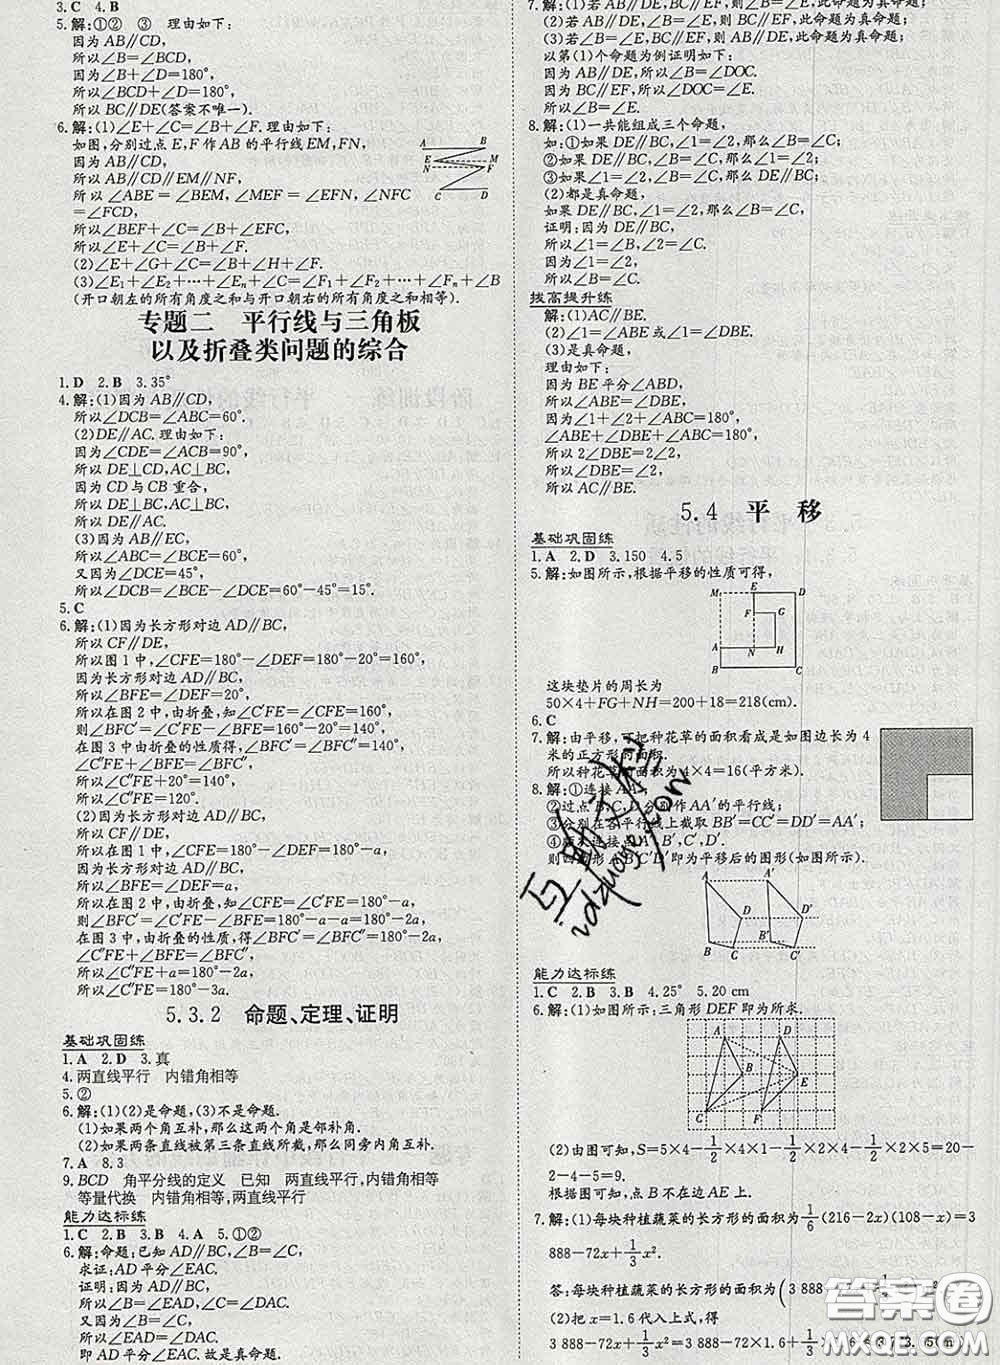 3.C　4.B
5.解:①②　③　理由如下:
因为AB∥CD,
所以∠B=∠BCD,
因为∠B+∠D=180°,
所以∠BCD+∠D=180°,
所以BC∥DE(答案不唯一).
6.解:(1)∠E+∠C=∠B+∠F. 理由如下:
如图,分别过点E,F作AB的平行线EM,FN,
因为AB∥CD,
所以AB∥CD∥EM∥FN,
所以∠ABE=∠BEM,∠MEF=∠EFN,∠NFC
=∠FCD,
所以∠BEF+∠C=∠B+∠EFC,
所以∠E+∠C=∠B+∠F.
(2)∠E+∠G+∠C=∠B+∠F+∠H.
(3)∠E₁+∠E₂+…+∠Eₙ+∠C=∠F₁+∠F₂+…+∠Fₙ+∠B
(开口朝左的所有角度之和与开口朝右的所有角度之和相等).
A B
E M
N F
C D
专题二　平行线与三角板
以及折叠类问题的综合
1.D　2.B　3.35°
4.解:(1)因为AB∥CD,
所以∠DCB=∠ABC=60°.
(2)DE∥AC. 理由如下:
因为∠CDE=∠ACB=90°,
所以DE⊥CD,AC⊥BC,
因为CD与CB重合,
所以DE⊥BC,AC⊥BC,
所以DE∥AC.
(3)因为AB∥CE,
所以∠ABC=∠BCE=60°,
又因为∠DCE=45°,
所以∠DCB=∠BCE-∠DCE=60°-45°=15°.
5.C
6.解:(1)因为长方形对边AD∥BC,
所以CF∥DE,
所以图1中,∠CFE=180°-∠DEF=180°-20°=160°,
因为长方形对边AD∥BC,
所以∠BFE=∠DEF=20°,
所以在图2中,由折叠,知∠C′FE=∠CFE=160°,
则∠BFC′=∠C′FE-∠BFE=160°-20°=140°.
在图3中由折叠的性质得,∠BFC′=∠BFC″,
所以∠C″FE+∠BFE=∠BFC″,
所以∠C″FE+20°=140°,
所以∠C″FE=120°.
(2)因为长方形对边AD∥BC,
所以CF∥DE,
所以图1中,∠CFE=180°-∠DEF=180°-a,
因为长方形对边AD∥BC,
所以∠BFE=∠DEF=a,
所以在图2中,由折叠,得∠C′FE=∠CFE=180°-a,
则∠BFC′=∠C′FE-∠BFE=180°-a-a=180°-2a,
在图3中,由折叠的性质,得∠BFC′=∠BFC″=180°-2a,
∠C″FE+∠BFE=∠BFC″,
所以∠C″FE+a=180°-2a,
所以∠C″FE=180°-3a.
5.3.2　命题、定理、证明
基础巩固练
1.A　2.D　3.真
4.两直线平行　内错角相等
5.②
6.解:(1)(2)是命题,(3)不是命题.
(1)如果两个角互补,那么这两个角是邻补角.
(2)如果两条直线被第三条直线所截,那么同旁内角互补.
7.A　8.3
9.BCD　角平分线的定义　已知　两直线平行,内错角相等
等量代换　内错角相等,两直线平行
能力达标练
1.C　2.B　3.B　4.A　5.①②
6.解:命题:已知AD∥BC,∠B=∠C,
求证:AD平分∠EAC.
证明:因为AD∥BC,
所以∠B=∠EAD,∠C=∠DAC.
又因为∠B=∠C,
所以∠EAD=∠DAC.
即AD平分∠EAC. 故是真命题.
7.解:(1)若AB∥DE,BC∥EF,则∠B=∠E,此命题为真命题.
(2)若AB∥DE,∠B=∠E,则BC∥EF,此命题为真命题.
(3)若∠B=∠E,BC∥EF,则AB∥DE,此命题为真命题.
以第(1)个命题为例证明如下:
因为AB∥DE,所以∠B=∠DOC.
因为BC∥EF,所以∠DOC=∠E.
所以∠B=∠E.
8.解:(1)一共能组成三个命题,
如:①如果DE∥BC,∠1=∠2,那么∠B=∠C;
②如果DE∥BC,∠B=∠C,那么∠1=∠2;
③如果∠1=∠2,∠B=∠C,那么DE∥BC;
(2)都是真命题,
如果DE∥BC,∠1=∠2,那么∠B=∠C,
证明:因为DE∥BC,
所以∠1=∠B,∠2=∠C.
因为∠1=∠2,
所以∠B=∠C.
拔高提升练
解:(1)AC∥BE.
(2)∠1=∠ABE或∠1=∠DBE.
(3)是真命题,
理由如下:
因为BE平分∠ABD,
所以∠ABE=∠DBE,
因为∠1+∠2+∠ABC=180°,
∠ABE+∠DBE+∠ABC=180°,
所以2∠DBE=2∠2,
所以∠DBE=∠2,
所以AC∥BE.
5.4　平　移
基础巩固练
1.A　2.D　3.150　4.5
5.解:如图所示,根据平移的性质可得,
M E D
F G
A N H
B C
这块垫片的周长为
50×4+FG+NH=200+18=218(cm).
6.C
7.解:由平移,可把种花草的面积看成是如图边长为4
米的正方形的面积.
所以种花草的面积为4×4=16(平方米).
8.解:①连接AA′;
②过点B,C,D分别作AA′的平行线;
③分别在各平行线上截取BB′=CC′=DD′=AA′;
④顺次连接点A′,B′,C′,D′.
则四边形A′B′C′D′即为平移后的图形(如图所示).
A A′
D D′
B B′
C C′
能力达标练
1.C　2.B　3.B　4.25°　5.20 cm
6.解:(1)如图所示:三角形DEF即为所求.
A D
B E
C F
(2)由图可知,S=5×4-1/2×4×1-1/2×2×4-1/2×2×5=20-
2-4-5=9.
根据图可知,点B不在边AE上.
7.解:(1)每块种植蔬菜的长方形的面积为1/6(216-2x)(108-x)=3
888-72x+1/3x².
答:每块种植蔬菜的长方形的面积为(3 888-72x+1/3x²)
(2)把x=1.6代入上式,得
3 888-72x+1/3x²=3 888-72×1.6+1/3
互助文档
vdzuoye.con
答案圈